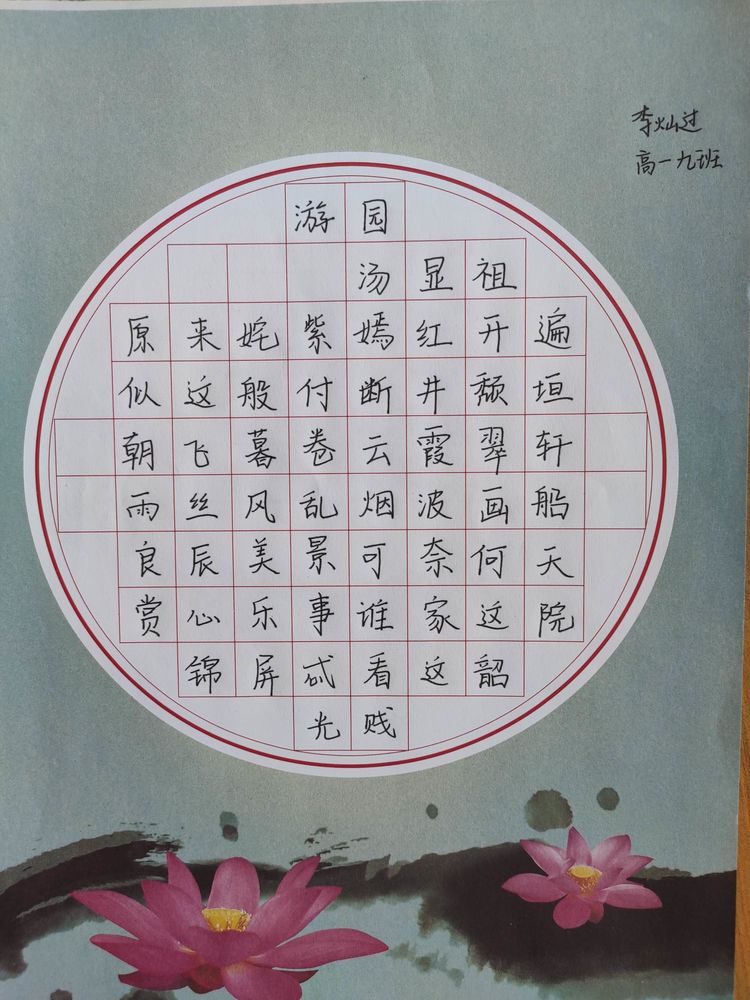 李灿过
高一九班
游园
汤显祖
原来姹紫嫣红开遍
似这般付断井颓垣
朝飞暮卷云霞翠轩
雨丝风乱烟波画船
良辰美景可奈何天
赏心乐事谁家这院
锦屏忒看这韶
光贱